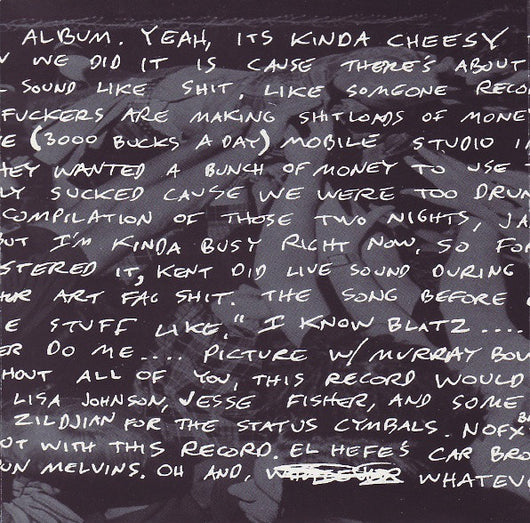 ALBUM. YEAH, ITS KINDA CHEESY
WE DID IT IS CAUSE THERE'S ABOUT
SOUND LIKE SHIT, LIKE SOMEONE RECO
FUCKERS ARE MAKING SHITLOADS OF MONE
E (3000 BUCKS A DAY) MOBILE STUDIO I
HEY WANTED A BUNCH OF MONEY TO USE
LY SUCKED CAUSE WE WERE TOO DRU
COMPILATION OF THOSE TWO NIGHTS, JA
BUT I'M KINDA BUSY RIGHT NOW, SO FO
STERED IT, KENT DID LIVE SOUND DURING
ART FAG SHIT. THE SONG BEFORE
E STUFF LIKE," I KNOW BLATZ ....
ER DO ME.... PICTURE W/ MURRAY BOW
HOUT ALL OF YOU, THIS RECORD WOULD
LISA JOHNSON, JESSE FISHER, AND SOME
ZILDJIAN FOR THE STATUS CYMBALS. NOFX
OUT WITH THIS RECORD. EL HEFE'S CAR BRO
UN MELVINS. OH AND, WHATEV